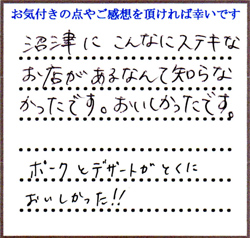 お気付きの点やご感想を頂ければ幸いです
沼津に こんなにステキな
お店があるなんて知らな
かったです。おいしかったです。
ポークとデザートがとくに
おいしかった!!